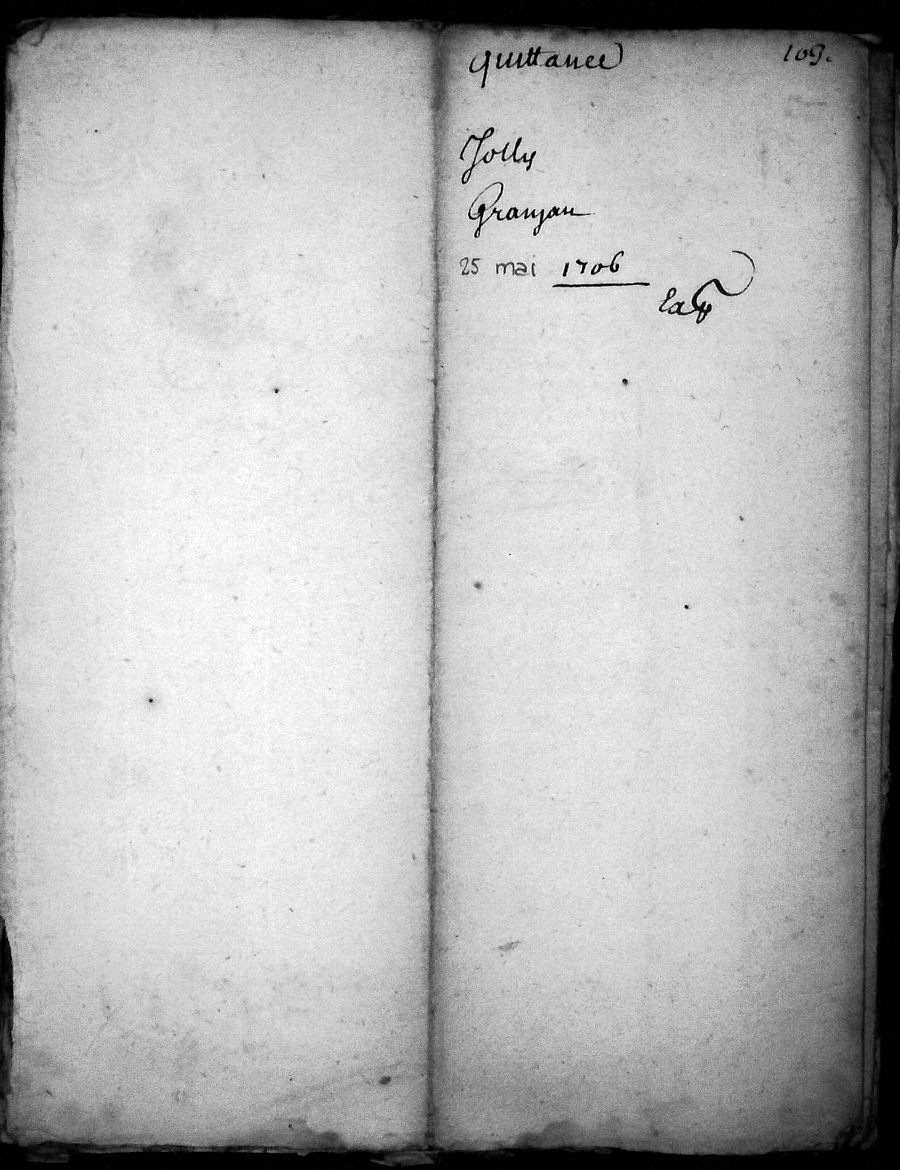 quittance 109.
Jolly
Granjan
25 mai 1706